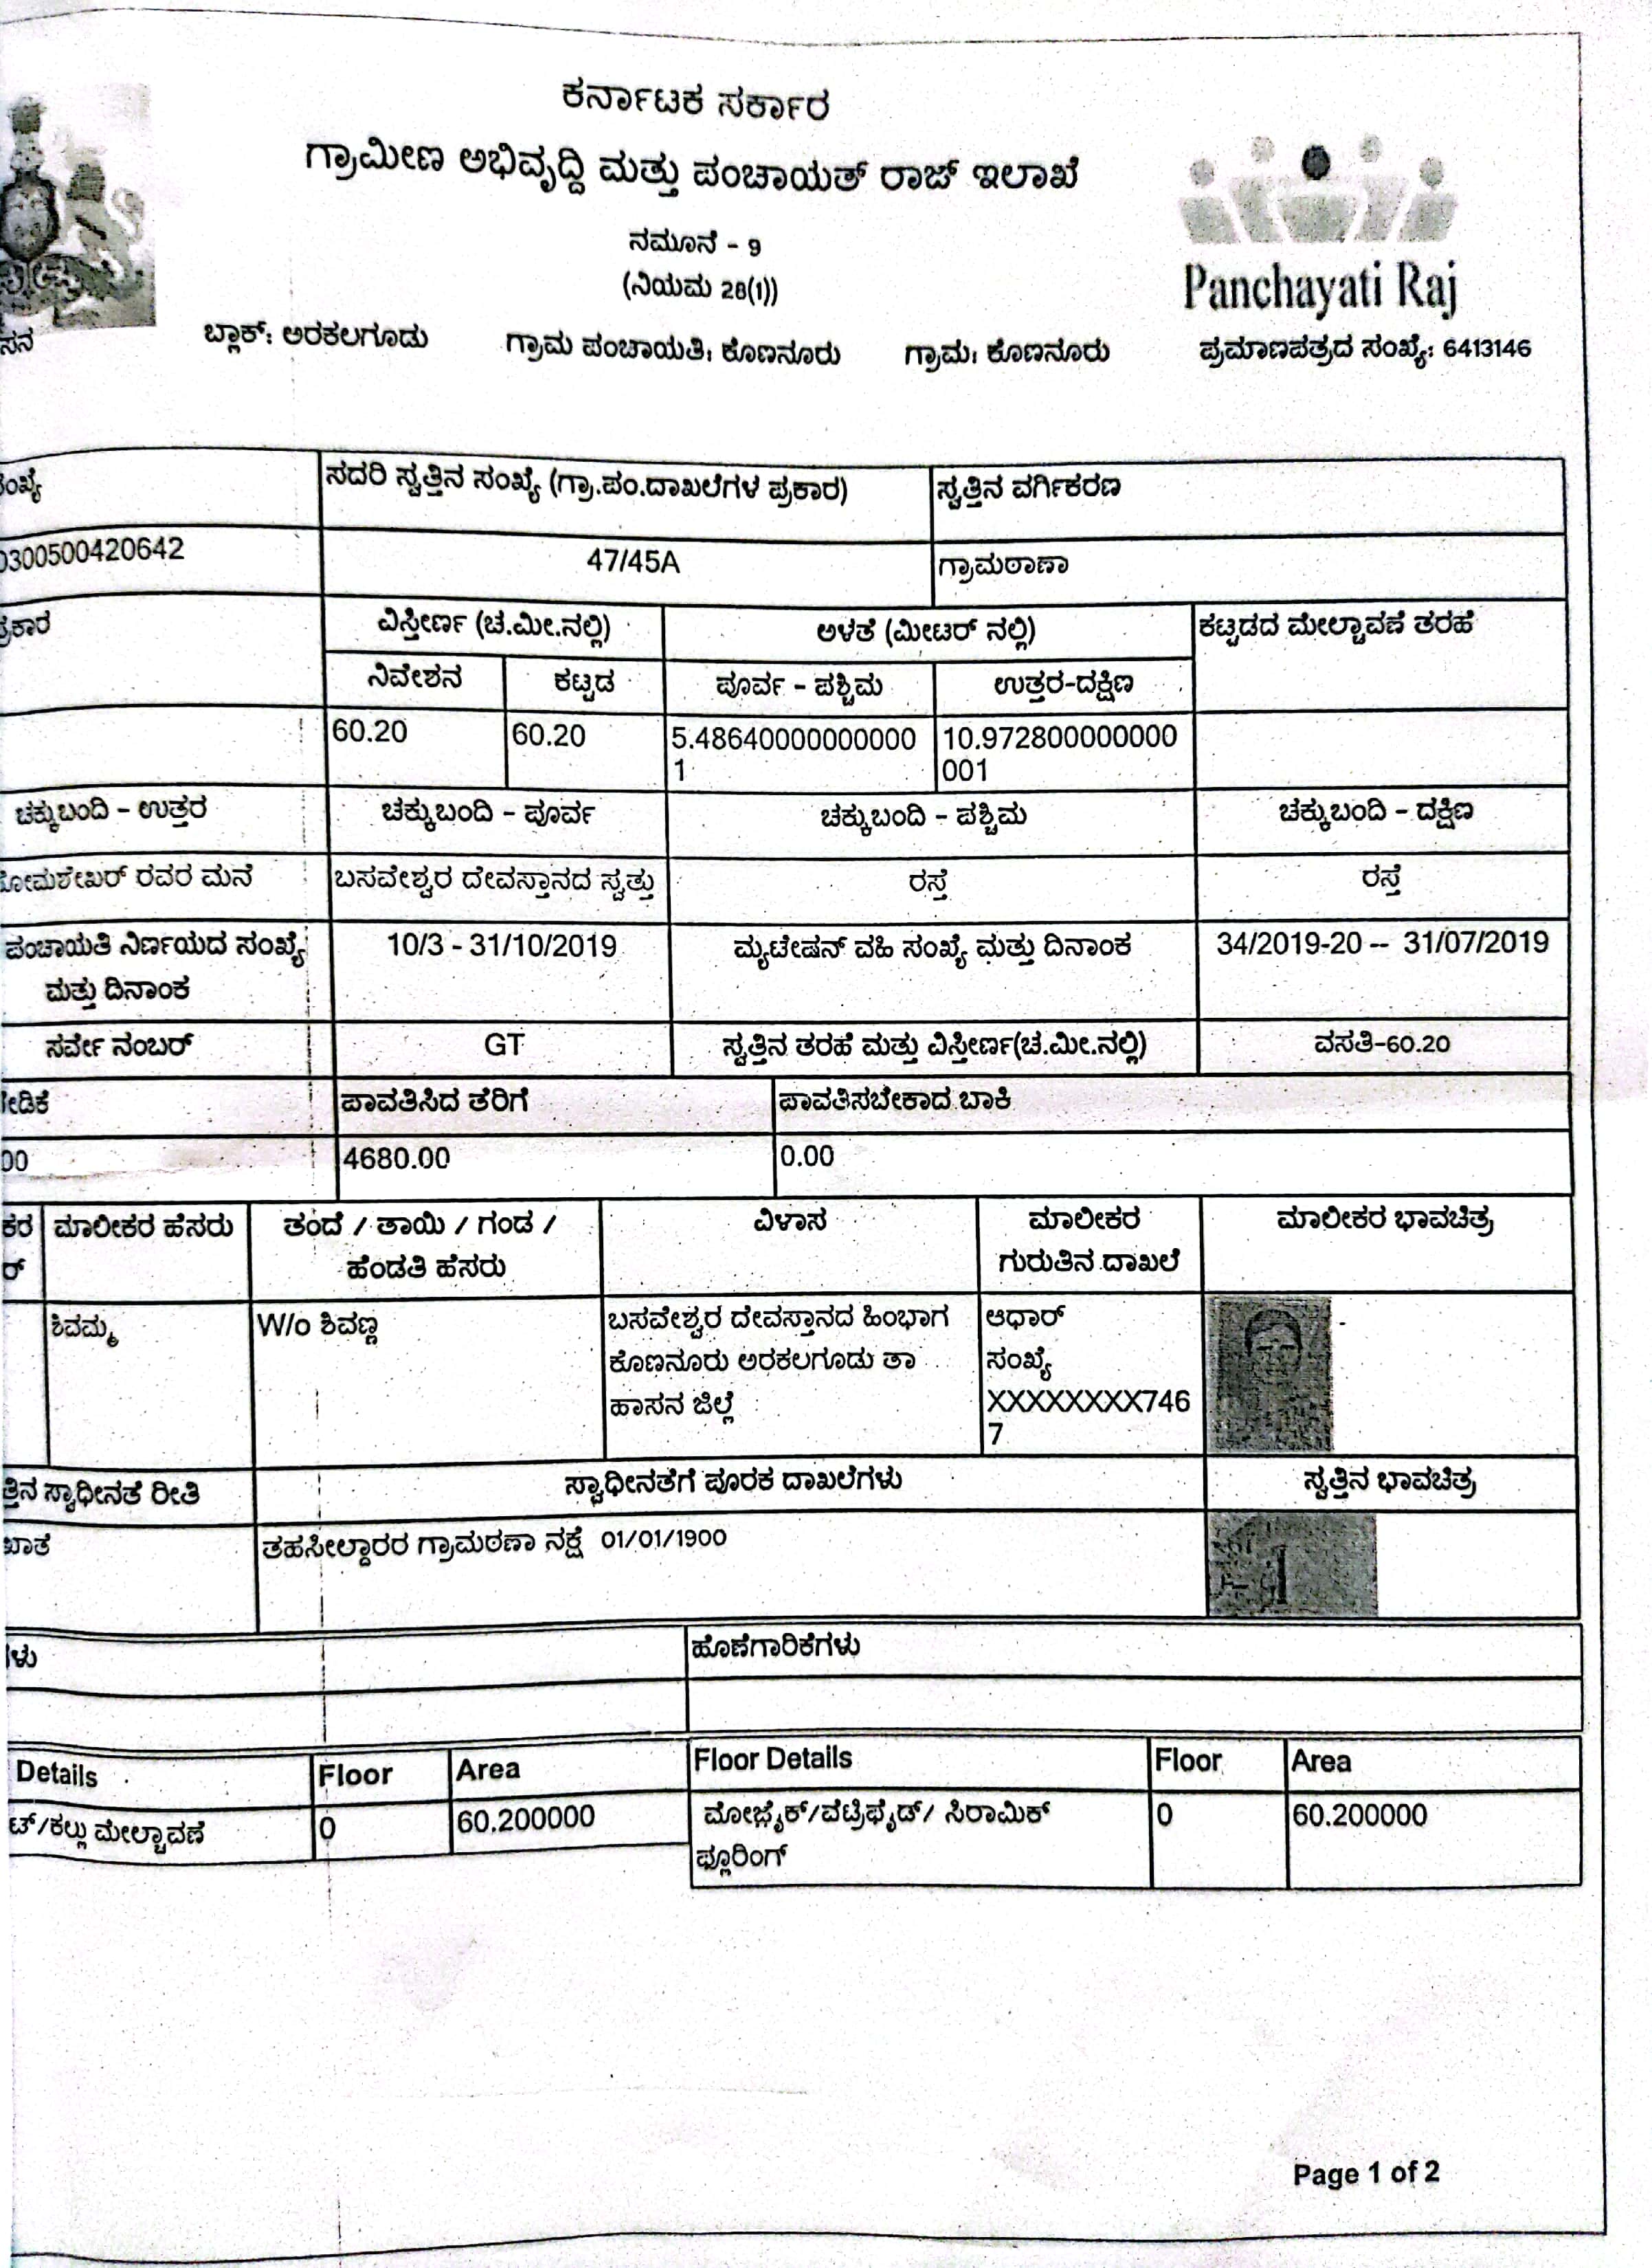 ಕರ್ನಾಟಕ ಸರ್ಕಾರ
ಗ್ರಾಮೀಣ ಅಭಿವೃದ್ಧಿ ಮತ್ತು ಪಂಚಾಯತ್ ರಾಜ್ ಇಲಾಖೆ
ನಮೂನೆ - 9
(ನಿಯಮ 28(1))
Panchayati Raj
ಬ್ಲಾಕ್: ಅರಕಲಗೂಡು ಗ್ರಾಮ ಪಂಚಾಯತಿ: ಕೊಣನೂರು ಗ್ರಾಮ: ಕೊಣನೂರು ಪ್ರಮಾಣಪತ್ರದ ಸಂಖ್ಯೆ: 6413146
ಸದರಿ ಸ್ವತ್ತಿನ ಸಂಖ್ಯೆ (ಗ್ರಾ.ಪಂ.ದಾಖಲೆಗಳ ಪ್ರಕಾರ) ಸ್ವತ್ತಿನ ವರ್ಗೀಕರಣ
0300500420642 47/45A ಗ್ರಾಮಠಾಣಾ
ವಿಸ್ತೀರ್ಣ (ಚ.ಮೀ.ನಲ್ಲಿ) ಅಳತೆ (ಮೀಟರ್ ನಲ್ಲಿ) ಕಟ್ಟಡದ ಮೇಲ್ಚಾವಣೆ ತರಹೆ
ನಿವೇಶನ ಕಟ್ಟಡ ಪೂರ್ವ - ಪಶ್ಚಿಮ ಉತ್ತರ-ದಕ್ಷಿಣ
60.20 60.20 5.48640000000000 10.972800000000
1 001
ಚಕ್ಕುಬಂದಿ - ಉತ್ತರ ಚಕ್ಕುಬಂದಿ - ಪೂರ್ವ ಚಕ್ಕುಬಂದಿ - ಪಶ್ಚಿಮ ಚಕ್ಕುಬಂದಿ - ದಕ್ಷಿಣ
ರವರ ಮನೆ ಬಸವೇಶ್ವರ ದೇವಸ್ತಾನದ ಸ್ವತ್ತು ರಸ್ತೆ ರಸ್ತೆ
ಪಂಚಾಯತಿ ನಿರ್ಣಯದ ಸಂಖ್ಯೆ 10/3 - 31/10/2019 ಮ್ಯುಟೇಷನ್ ವಹಿ ಸಂಖ್ಯೆ ಮತ್ತು ದಿನಾಂಕ 34/2019-20 -- 31/07/2019
ಮತ್ತು ದಿನಾಂಕ
ಸರ್ವೇ ನಂಬರ್ GT ಸ್ವತ್ತಿನ ತರಹೆ ಮತ್ತು ವಿಸ್ತೀರ್ಣ(ಚ.ಮೀ.ನಲ್ಲಿ) ವಸತಿ-60.20
ಪಾವತಿಸಿದ ತೆರಿಗೆ ಪಾವತಿಸಬೇಕಾದ ಬಾಕಿ
00 4680.00 0.00
ಮಾಲೀಕರ ಹೆಸರು ತಂದೆ / ತಾಯಿ / ಗಂಡ / ವಿಳಾಸ ಮಾಲೀಕರ ಮಾಲೀಕರ ಭಾವಚಿತ್ರ
ಹೆಂಡತಿ ಹೆಸರು ಗುರುತಿನ ದಾಖಲೆ
ಶಿವಮ್ಮ W/o ಶಿವಣ್ಣ ಬಸವೇಶ್ವರ ದೇವಸ್ತಾನದ ಹಿಂಭಾಗ ಆಧಾರ್
ಕೊಣನೂರು ಅರಕಲಗೂಡು ತಾ ಸಂಖ್ಯೆ
ಹಾಸನ ಜಿಲ್ಲೆ XXXXXXXX746
7
ಸ್ವಾಧೀನತೆ ರೀತಿ ಸ್ವಾಧೀನತೆಗೆ ಪೂರಕ ದಾಖಲೆಗಳು ಸ್ವತ್ತಿನ ಭಾವಚಿತ್ರ
ತಹಸೀಲ್ದಾರರ ಗ್ರಾಮಠಣಾ ನಕ್ಷೆ 01/01/1900
ಹೊಣೆಗಾರಿಕೆಗಳು
Details Floor Area Floor Details Floor Area
ಟ್/ಕಲ್ಲು ಮೇಲ್ಚಾವಣೆ 0 60.200000 ಮೋಜೈಕ್/ವೆಟ್ರಿಫೈಡ್/ ಸಿರಾಮಿಕ್ 0 60.200000
ಫ್ಲೂರಿಂಗ್
Page 1 of 2